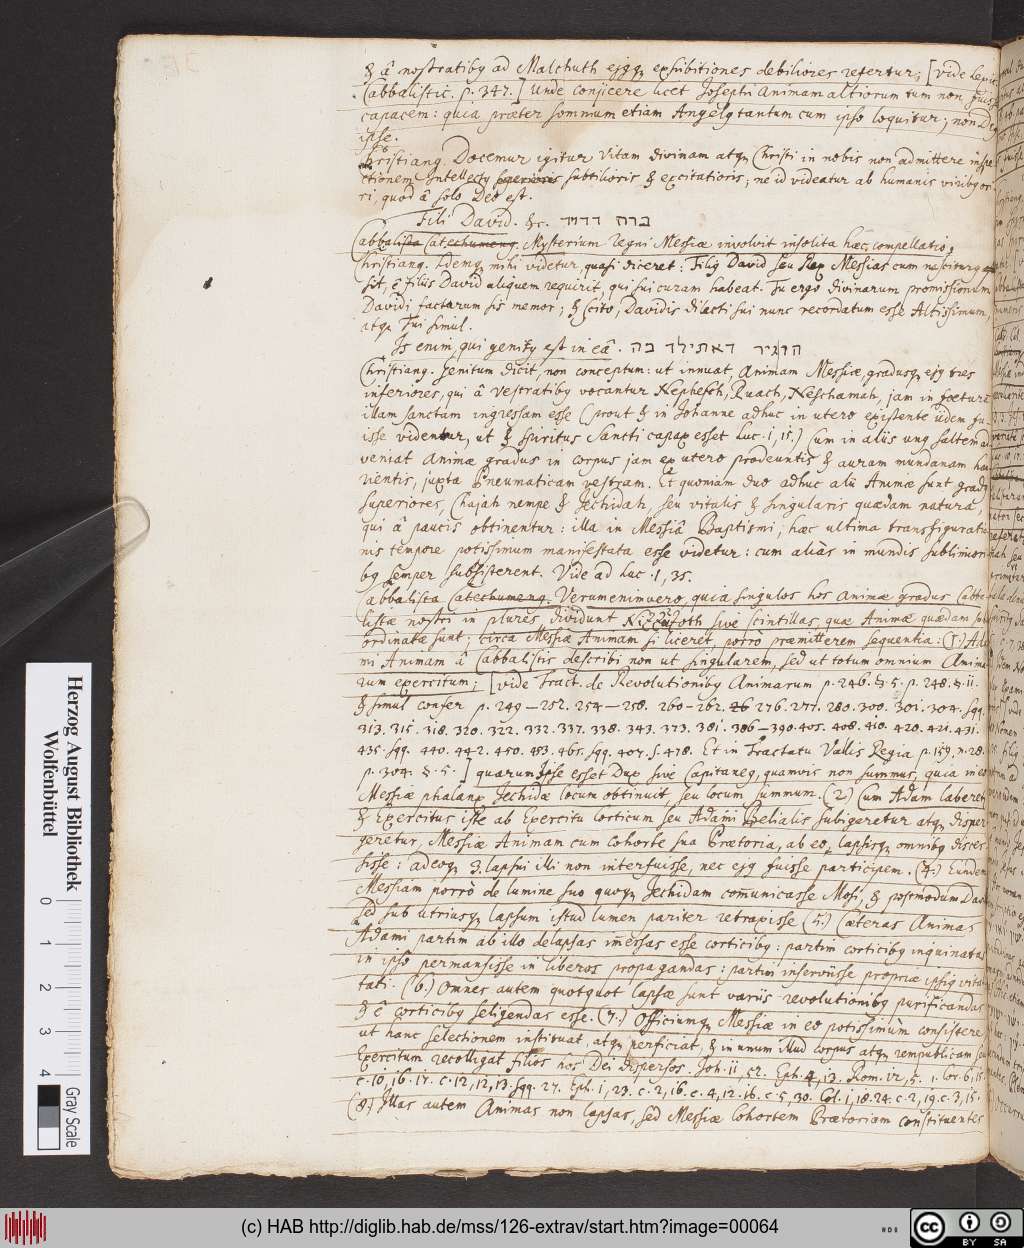 & â nostratibq ad Malchuth ejqq exhibitiones debiliores refertur; [vide Lexic.
Cabbalistic. p. 347.] Unde conjicere licet Josephi Animam altiorum tum non fuisse
capacem: quia præter somnum etiam Angelq tantum cum ipso loquitur; non Deq
ipse.
Christianq. Docemur igitur Vitam divinam atq Christi in nobis non admittere inspe
ctionem Intellectq subtilioris & excitatioris; ne id videatur ab humanis viribq or
ri, quod â solo Deo est.
Fili David. &c. ברה דדויד
Cabbalista Catechumenq. Mysterium regni Messiæ involvit insolita hæc compellatio.
Christianq. Idemq mihi videtur, quasi diceret: Filiq David seu Rex Messias cum nasciturq
sit, ê filiis David aliquem requirit, qui sui curam habeat. Tu ergo divinarum promissionum
Davidi factarum sis memor; & scito, Davidis dilecti sui nunc recordatum esse Altissimum,
atq Tui simul.
Is enim, qui genitq est in eâ. הו גיר דאתילד בה
Christianq. Genitum dicit, non conceptum: ut innuat, Animam Messiæ, gradusq ejq tres
inferiores, qui â vestratibq vocantur Nephesch, Ruach, Neschamah, jam in fœtura
illam sanctam ingressam esse (prout & in Johanne adhuc in utero existente idem fu
isse videntur, ut & Spiritus Sancti capax esset Luc. 1, 15.) Cum in aliis unq saltem ad
veniat Animæ gradus in corpus jam ex utero prodeuntis & auram mundanam hau
rientis, juxta Pneumaticam vestram. Et quoniam duo adhuc alii Animæ sunt gradq
superiores, Chajah nempe & Jechidah, seu vitalis & singularis quædam natura,
qui â paucis obtinentur: illa in Messiâ Baptismi; hæc ultima transfiguratio
nis tempore potissimum manifestata esse videtur: cum aliàs in mundis sublimiori
bq semper subsisterent. Vide ad Luc. 1, 35.
Cabbalista Catechumenq. Verumenimvero, quia singulos hos animæ gradus Cabba
listæ nostri in plures dividunt Nizzuzoth sive scintillas, quæ Animæ quædam sub
ordinatæ sunt; circa Messiæ Animam si liceret, porrò præmitterem sequentia: (1.) Ada
mi Animam â Cabbalistis describi non ut singularem, sed ut totum omnium Anima
rum exercitum; [vide Tract. de Revolutionibq Animarum p. 246. §. 5. p. 248. §. 11.
& simul confer p. 249 — 252. 254 — 258. 260 — 262. 276. 277. 280. 300. 301. 304. sqq.
313. 315. 318. 320. 322. 332. 337. 338. 343. 373. 381. 386 — 390. 405. 408. 410. 420. 421. 431.
435. sqq. 440. 442. 450. 453. 465. sqq. 407. s. 478. Et in Tractatu Vallis Regia p. 159. n. 28.
p. 304. §. 5.] quarum Ipse esset Dux sive Capitaneq, quamvis non summus, quia in eo
Messiæ phalanx Jechidæ locum obtinuit, seu locum summum. (2.) Cum Adam laberet
& Exercitus iste ab Exercitu corticum seu Adami Belialis subigeretur atq disper
geretur, Messiæ Animam cum cohorte sua Prætoria, ab eo, lapsisq omnibq disces
sisse: adeoq 3. lapsui illi non interfuisse, nec ejq fuisse participem. (4.) Eundem
Messiam porrò de lumine suo quoq Jechidam com̄unicasse Mosi, & postmodum Davi
sed sub utriusq lapsum istud lumen pariter retraxisse (5.) Cæteras Animas
Adami partim ab illo delapsas im̄ersas esse corticibq: partim corticibq inquinatas
in ipso permansisse in liberos propagandas: partim inserviisse propriæ ipsiq vita
tati. (6.) Omnes autem quotquot lapsæ sunt variis revolutionibq purificandas
& ê corticibq seligendas esse. (7.) Officiumq Messiæ in eo potissimùm consistere
ut hanc selectionem instituat, atq perficiat, & in unum illud corpus atq rempublicam seu
Exercitum recolligat filios hos Dei dispersos. Joh. 11, 52. Eph. 4, 13. Rom. 12, 5. 1. Cor. 6, 15.
c. 10, 16. 17. c. 12, 12, 13. sqq. 27. Eph. 1, 23. c. 2, 16. c. 4, 12. 16. c. 5, 30. Col. 1, 18. 24. c. 2, 19. c. 3, 15.
(8.) Illas autem Animas non lapsas, sed Messiæ Cohortem Prætoriam constituentes
Herzog August Bibliothek
Wolfenbüttel
0 1 2 3 4
Gray Scale
(c) HAB http://diglib.hab.de/mss/126-extrav/start.htm?image=00064
cc BY SA